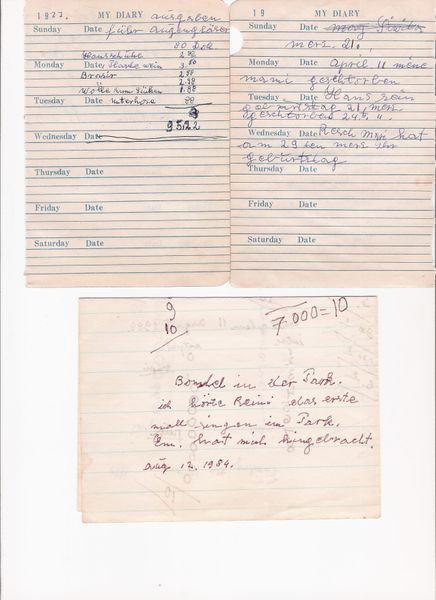 1977. MY DIARY ausgaben
Sunday Date für augengläser
80 Doll
Hausschuhe 2.98
Monday Date Flasche wein 3.80
Brosir 2.98
" 2.98
Wolle zum Stricken 1.88
Tuesday Date unterhose 88
95.22
Wednesday Date
Thursday Date
Friday Date
Saturday Date
19 MY DIARY
Sunday Date
merz. 21.
Monday Date April 11 meine
mami geschtorben
Tuesday Date Hans sein
geburtstag 21, merz
geschtorben 24
Wednesday Date Resch Mizi hat
am 29 ten merz ihr
geburtstag
Thursday Date
Friday Date
Saturday Date
9
10
7.000=10
in der Park.
ich hörte Reini das erste
mall singen im Park.
Em. hat mich hingebracht.
Aug 12. 1984.